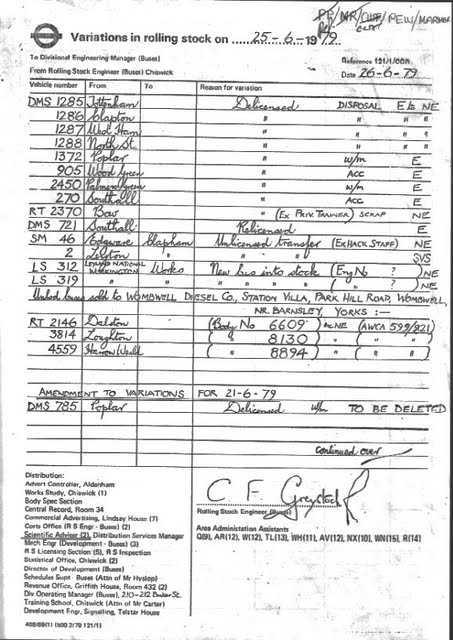 PP/MR/OUF/PEW/MARHAR
Variations in rolling stock on 25-6-1979
To Divisional Engineering Manager (Buses)
From Rolling Stock Engineer (Buses) Chiswick
Reference 121/1/008
Date 26-6-79
Vehicle number From To Reason for variation
DMS 1285 Tottenham Delicensed DISPOSAL E & NE
1286 Clapton " " " "
1287 West Ham " " " "
1288 North St. " " " "
1372 Poplar " w/m E
905 Wood Green " ACC E
2450 Palmers Green " w/m E
270 Southall " ACC E
RT 2370 Bow " (Ex Priv. Trainer) SCRAP NE
DMS 721 Southall Relicensed E
SM 46 Edgware Clapham Unlicensed transfer (Ex Hack. Staff) NE
2 " " " SVS
LS 312 Leyland National Workington Works New bus into stock (Eng No ? ) NE
LS 319 " " " " " ( " ? ) NE
Unlcd buses sold to WOMBWELL DIESEL CO., STATION VILLA, PARK HILL ROAD, WOMBWELL,
NR. BARNSLEY, YORKS :—
RT 2146 Dalston (Body No 6609 ) NE (AWCA 599/821)
3814 Loughton ( " 8130 ) " "
4559 Harrow Weald ( " 8894 ) " "
AMENDMENT TO VARIATIONS FOR 21-6-79
DMS 785 Poplar Delicensed w/m TO BE DELETED
continued over
Distribution:
Advert Controller, Aldenham
Works Study, Chiswick (1)
Body Spec Section
Central Record, Room 34
Commercial Advertising, Lindsay House (7)
Corts Office (R S Engr - Buses) (2)
Scientific Adviser (2), Distribution Services Manager
Mech Engr (Development - Buses) (3)
R S Licensing Section (5), R S Inspection
Statistical Office, Chiswick (2)
Director of Development (Buses)
Schedules Supt - Buses (Attn of Mr Hyslop)
Revenue Office, Griffith House, Room 432 (2)
Div Operating Manager (Buses), 210-212 Baker St.
Training School, Chiswick (Attn of Mr Carter)
Development Engr, Signalling, Telstar House
C F Greystock
Rolling Stock Engineer (Buses)
Area Administation Assistants
Q(9), AR(12), W(12), TL(13), WH(11), AV(12), NX(10), WN(15), R(14)
408/69(1) (500 2/79 121/1)